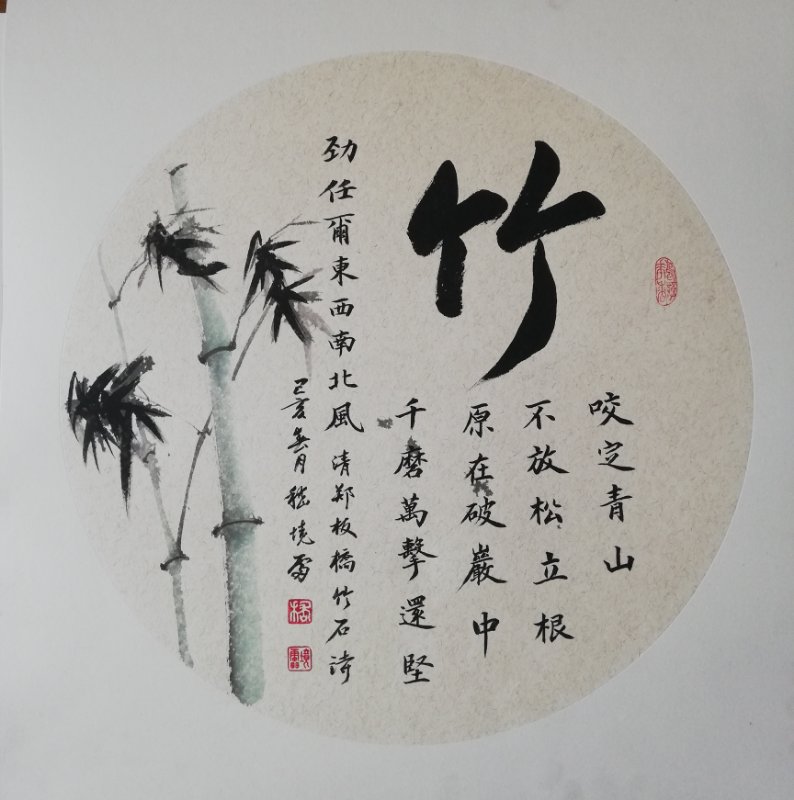 竹
咬定青山
不放松立根
原在破巖中
千磨萬擊還堅
劲任爾東西南北風 清郑板橋竹石诗
己亥 月 境雷